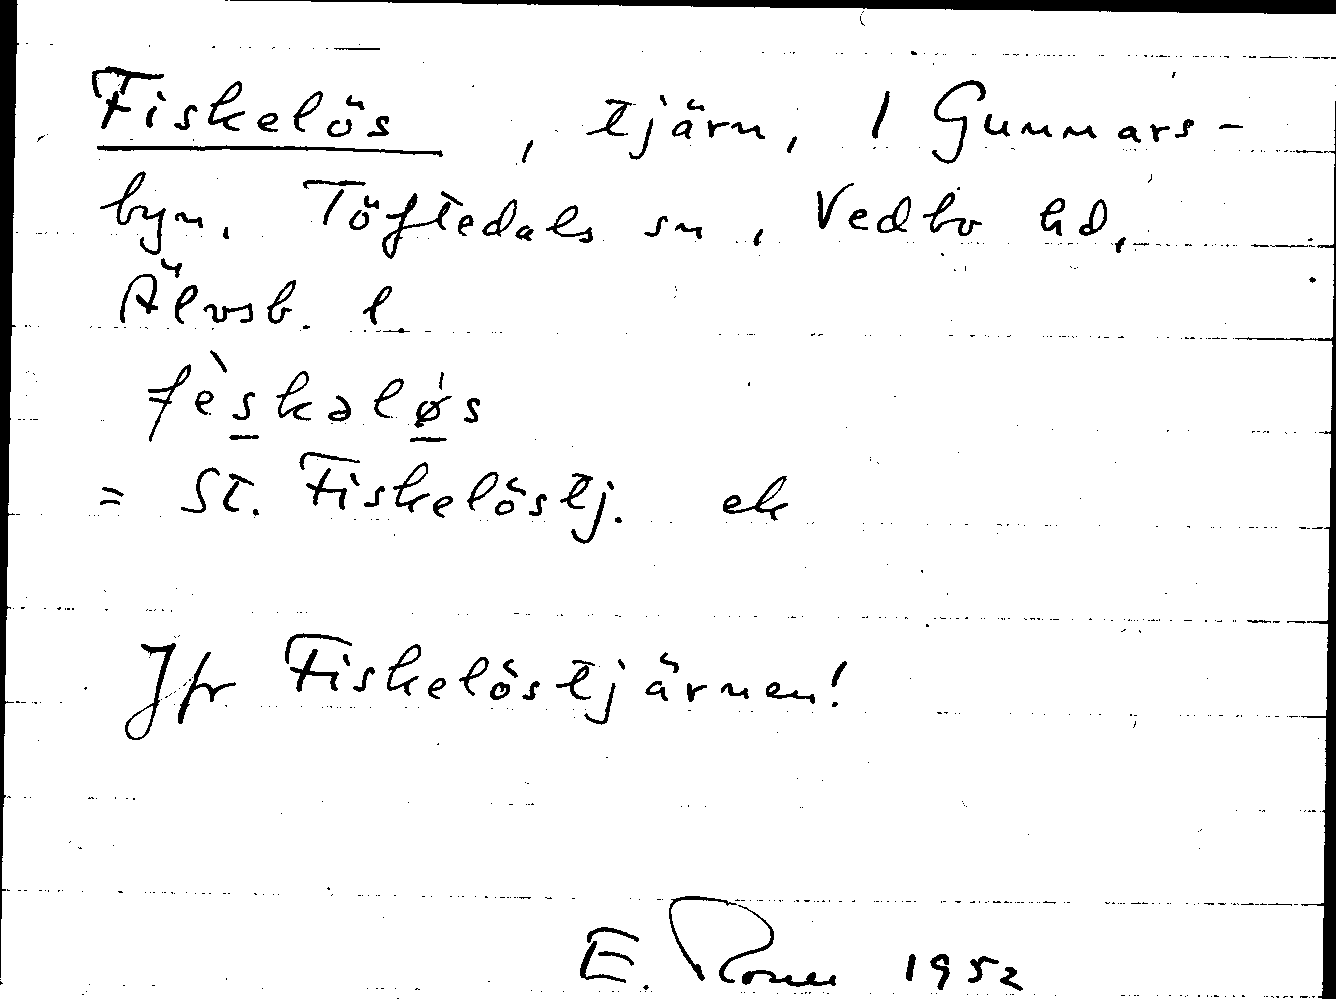 Fiskelös, tjärn, 1 Gunnars-
byn, Töftedals sn, Vedbo hd,
Älvsb. l.
fèskəlǿs
= St. Fiskelöstj. ek
Jfr Fiskelöstjärnen!
E. 1952